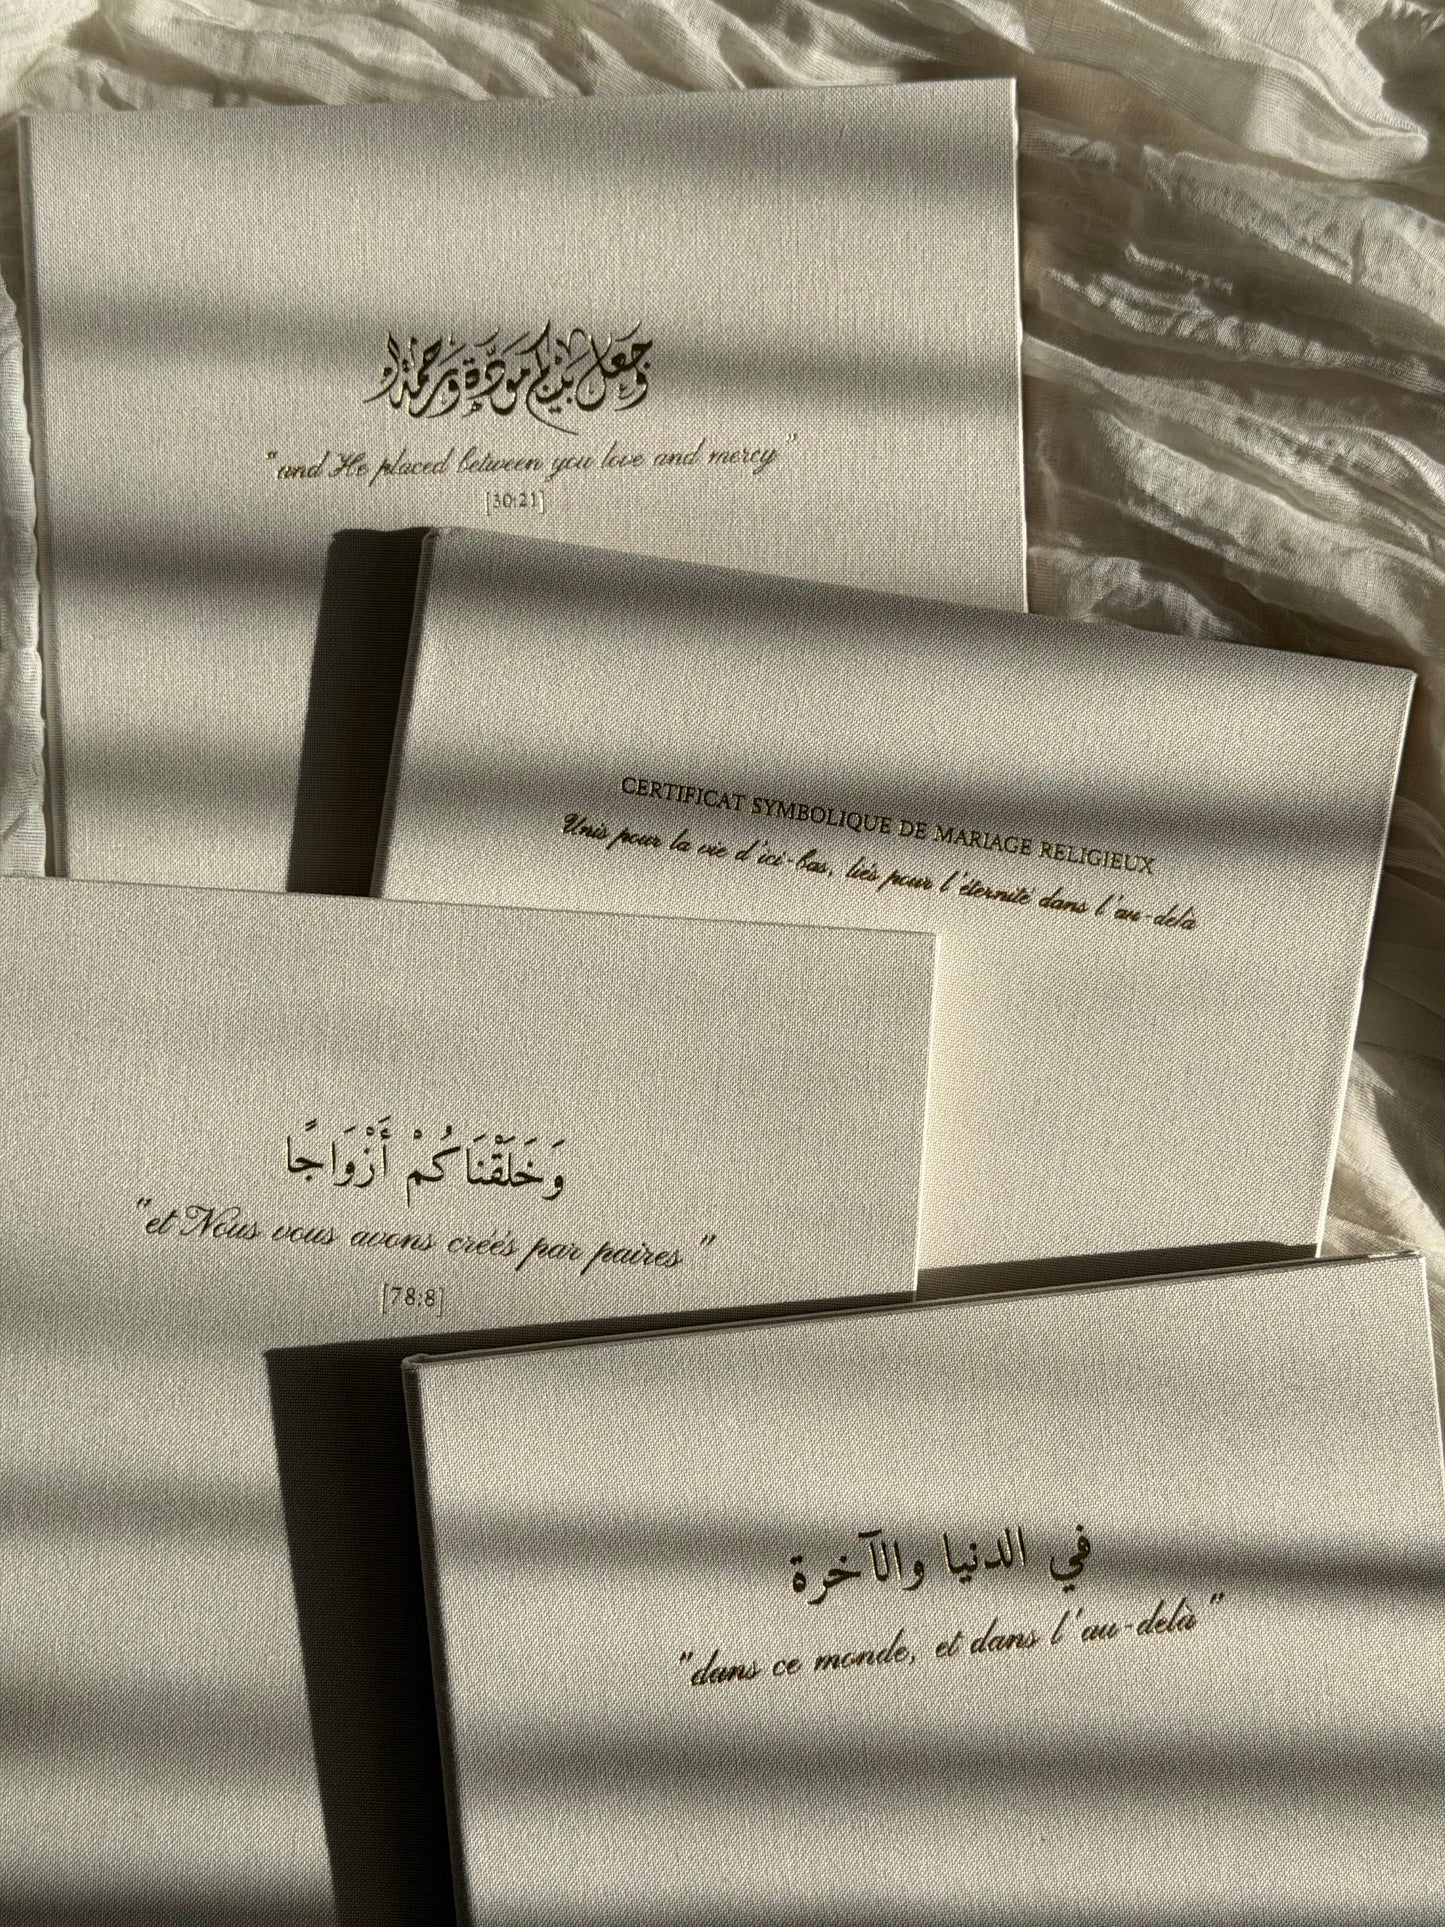 وجعل بينكم مودة ورحمة
"and He placed between you love and mercy"
[30:21]
CERTIFICAT SYMBOLIQUE DE MARIAGE RELIGIEUX
Unis pour la vie d'ici-bas, liés pour l'éternité dans l'au-delà
وَخَلَقْنَاكُمْ أَزْوَاجًا
"et Nous vous avons créés par paires"
[78:8]
في الدنيا والآخرة
"dans ce monde, et dans l'au-delà"